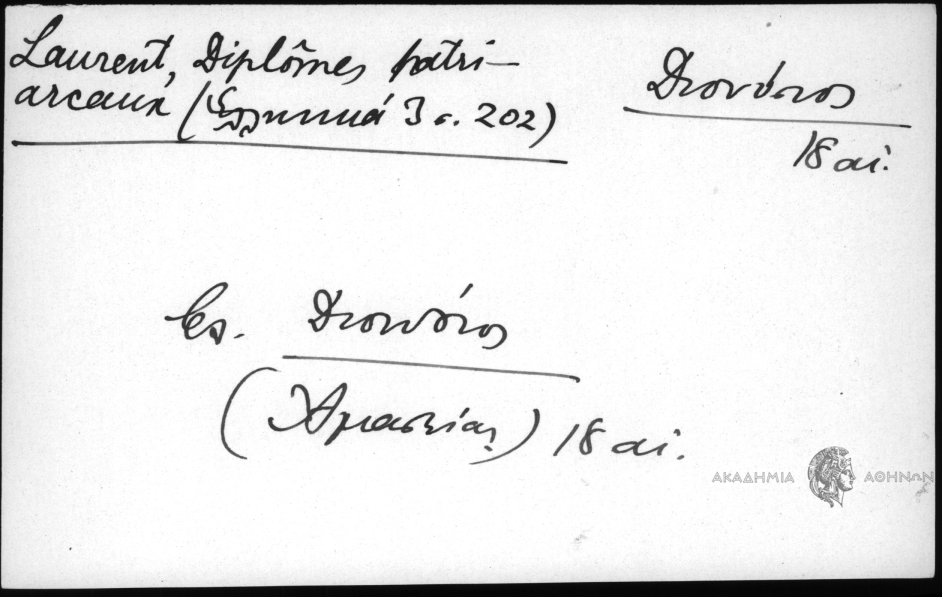 Laurent, Diplômes patri-
arcaux (Ἑλληνικά 3 σ. 202)
Διονύσιος
18 αἰ.
Διονύσιος
(Ἀμασείας) 18 αἰ.
ΑΚΑΔΗΜΙΑ ΑΘΗΝΩΝ